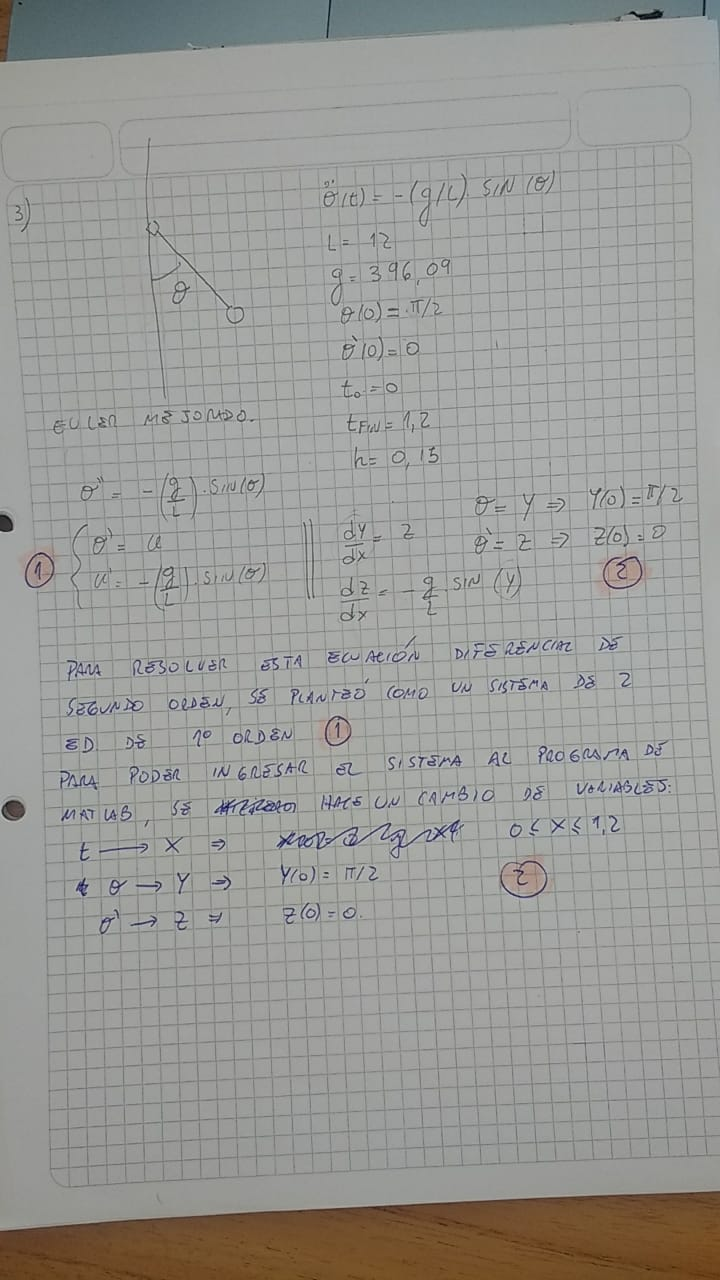 3)
θ̈(t) = -(g/L) . SIN (θ)
L = 12
g = 396,09
θ(0) = π/2
θ'(0) = 0
t₀ = 0
tFIN = 1,2
h = 0,15
θ
EULER MEJORADO.
θ'' = -(g/L) . SIN(θ)
θ' = u
u' = -(g/L) . SIN(θ)
1
dy/dx = z
dz/dx = -g/L . SIN (y)
θ = y ⇒ y(0) = π/2
θ' = z ⇒ z(0) = 0
2
PARA RESOLVER ESTA ECUACIÓN DIFERENCIAL DE
SEGUNDO ORDEN, SE PLANTEÓ COMO UN SISTEMA DE 2
ED DE 1º ORDEN 1
PARA PODER INGRESAR EL SISTEMA AL PROGRAMA DE
MATLAB, SE HACE UN CAMBIO DE VARIABLES:
t → x ⇒ 0 ≤ x ≤ 1,2
θ → y ⇒ y(0) = π/2
θ' → z ⇒ z(0) = 0.
2